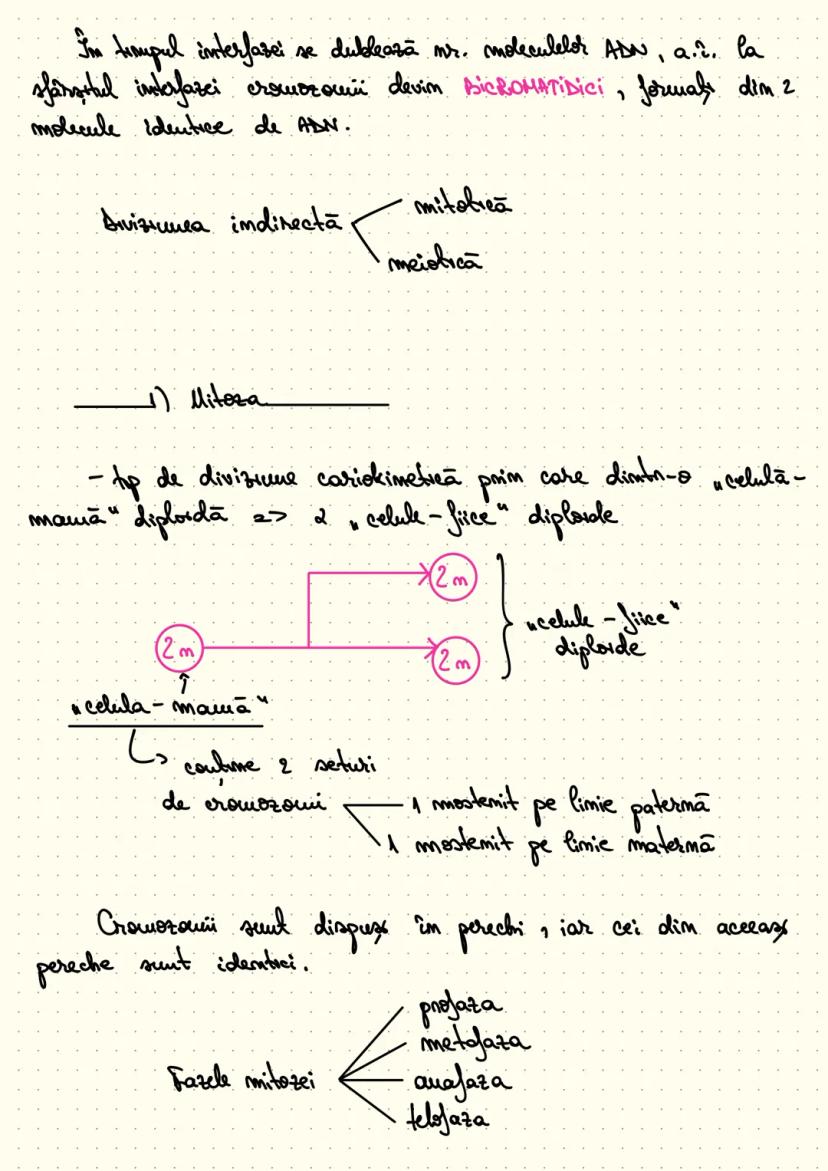 În timpul interfazei se dublează nr. moleculelor ADN, a.î. la
sfârșitul interfazei cromozomii devin BICROMATIDICI, formați din 2
molecule identice de ADN.
Diviziunea indirectă
mitotică
meiotică
1) Mitoza
- tip de diviziune cariokinetică prin care dintr-o „celulă-
mamă" diploidă => 2 „celule-fiice" diploide
2n
2n
2n
„celule-fiice"
diploide
„celula-mamă"
conține 2 seturi
de cromozomi
1 moștenit pe linie paternă
1 moștenit pe linie maternă
Cromozomii sunt dispuși în perechi, iar cei din aceeași
pereche sunt identici.
Fazele mitozei
profaza
metafaza
anafaza
telofaza